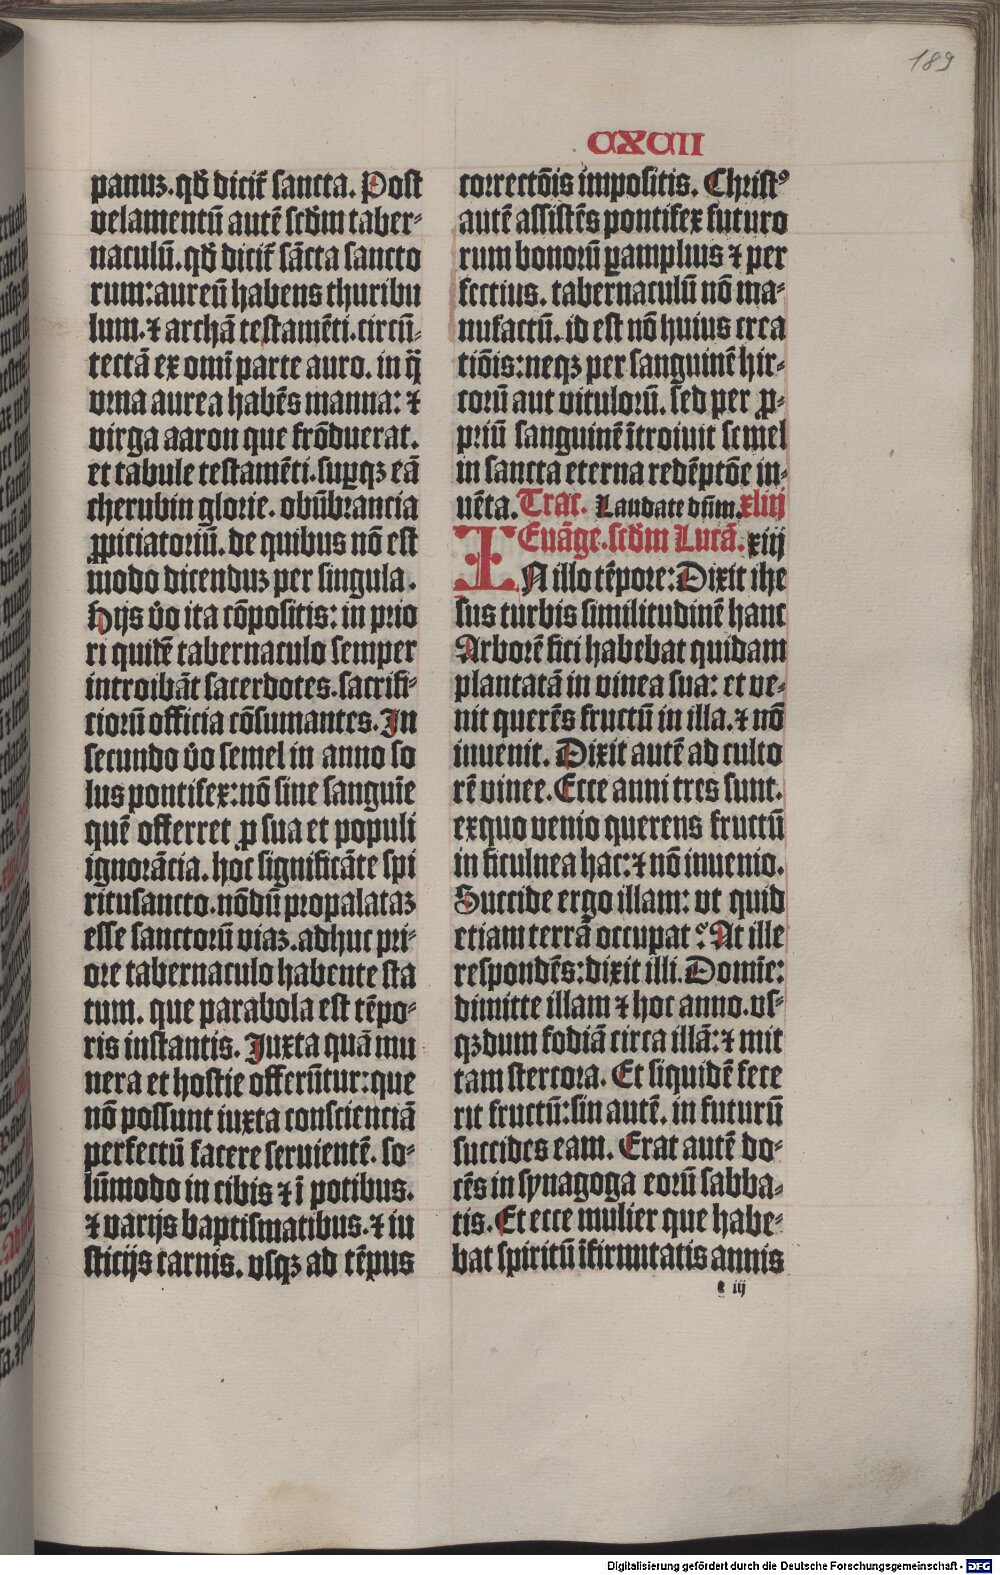 189
CXCII
panuz. qđ dicit᷑ sancta. Post
velamentū autē scđm taber⸗
naculū. qđ dicit᷑ sācta sancto
rum: aureū habens thuribu
lum. ⁊ archā testamēti. circū⸗
tectā ex omī parte auro. in q̄
vrna aurea habēs manna: ⁊
virga aaron que frōduerat.
et tabule testamēti. suꝑqꝫ eā
cherubin glorie. obūbrancia
ꝓpiciatoriū. de quibus nō est
modo dicenduz per singula.
Hijs v̊o ita cōpositis: in prio
ri quidē tabernaculo semper
introibāt sacerdotes. sacrifi⸗
ciorū officia cōsumantes. In
secundo v̊o semel in anno so
lus pontifex: nō sine sanguīe
quē offerret ꝓ sua et populi
ignorācia. hoc significāte spi
ritusancto. nōdū propalataz
esse sanctorū viaz. adhuc pri⸗
ore tabernaculo habente sta
tum. que parabola est tēpo⸗
ris instantis. Juxta quā mu
nera et hostie offerūtur: que
nō possunt iuxta conscienciā
perfectū facere seruientē. so⸗
lūmodo in cibis ⁊ ī potibus.
⁊ varijs baptismatibus. ⁊ iu
sticijs carnis. vsqꝫ ad tēpus
correctōis impositis. Christꝰ
autē assistēs pontifex futuro
rum bonorū ꝑamplius ⁊ per
fectius. tabernaculū nō ma⸗
nufactū. id est nō huius crea
tiōis: neqꝫ per sanguinē hir⸗
corū aut vitulorū. sed per ꝓ⸗
priū sanguinē ītroiuit semel
in sancta eterna redēptōe in⸗
uēta. Trac. Laudate dn̄m. xliij
Euāge. scđm Lucā. xiij
IN illo tēpore: Dixit ihe
sus turbis similitudinē hanc
Arborē fici habebat quidam
plantatā in vinea sua: et ve⸗
nit querēs fructū in illa. ⁊ nō
inuenit. Dixit autē ad culto
rē vinee. Ecce anni tres sunt.
exquo venio querens fructū
in ficulnea hac: ⁊ nō inuenio.
Succide ergo illam: vt quid
etiam terrā occupat? At ille
respondēs: dixit illi. Domīe:
dimitte illam ⁊ hoc anno. vs⸗
qꝫ dum fodiā circa illā: ⁊ mit
tam stercora. Et siquidē fece
rit fructū: sin autē. in futurū
succides eam. Erat autē do⸗
cēs in synagoga eorū sabba⸗
tis. Et ecce mulier que habe⸗
bat spiritū īfirmitatis annis
e iij
Digitalisierung gefördert durch die Deutsche Forschungsgemeinschaft - DFG